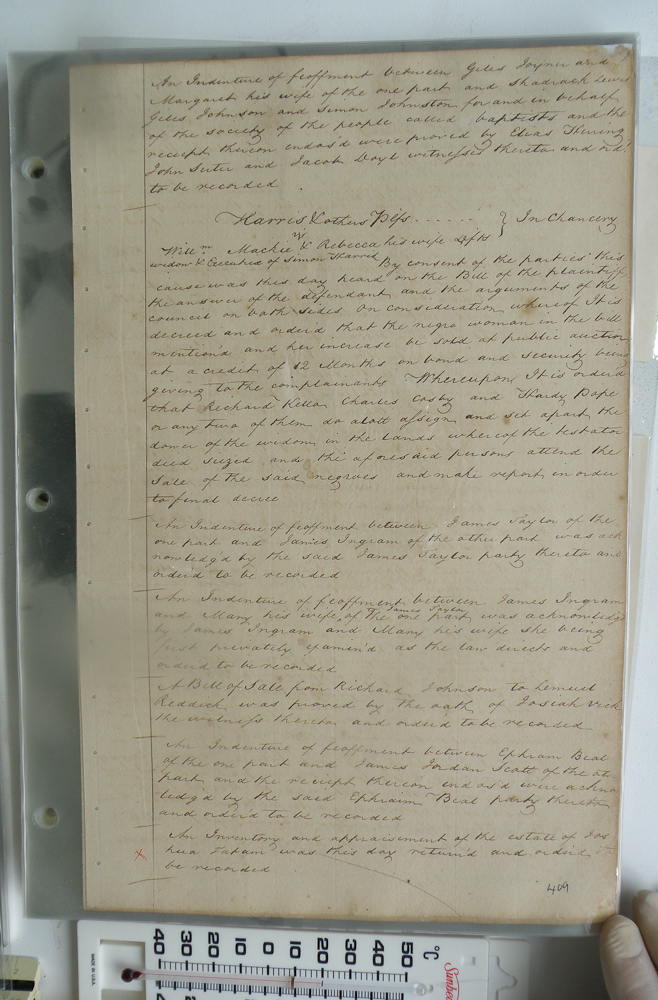 An Indenture of feoffment between Giles Joyner and
Margaret his wife of the one part and Shadrack Lewis
Giles Johnson and Simon Johnston for and in behalf
of the society of the people called baptists and the
receipt thereon endos'd were proved by Elias Herring
John Suter and Jacob Doyl witnesses thereto and ord.
to be recorded
Harris & others Plfs. ...... } In Chancery
vs
Will.m Mackie & Rebecca his wife dfts
widow & Executrix of Simon Harris By consent of the parties this
cause was this day heard on the Bill of the plaintiff
the answer of the defendant and the arguments of the
council on both sides On consideration whereof It is
decreed and order'd that the negro woman in the bill
mention'd and her increase be sold at public auction
at a credit of 12 Months on bond and security being
giving to the complainants Whereupon, It is order'd
that Richard Kello Charles Cosby and Hardy Pope
or any two of them do alott assign and set apart the
dower of the widow in the Lands whereof the testator
died seized and the aforesaid persons attend the
Sale of the said negroes and make report in order
to final decree
An Indenture of feoffment between James Taylor of the
one part and James Ingram of the other part was ack
nowledg'd by the said James Taylor party thereto and
order'd to be recorded
An Indenture of feoffment between James Ingram
and Mary his wife of the one part James Taylor was acknowledg
by James Ingram and Mary his wife she being
first privately examin'd as the law directs and
order'd to be recorded
A Bill of Sale from Richard Johnson to Lemuel
Reddick was proved by the oath of Josiah Vick
the witness thereto and order'd to be recorded
An Indenture of feoffment between Ephram Beal
of the one part and James Jordan Scott of the ot
part and the receipt thereon endos'd were ackno
ledg'd by the said Ephraim Beal party thereto
and order'd to be recorded
An Inventory and appraisement of the estate of Jos
hua was this day return'd and order'd
be recorded
x
409
MADE IN U.S.A.
40 30 20 10 0 10 20 30 40 50 °C
Sunbea